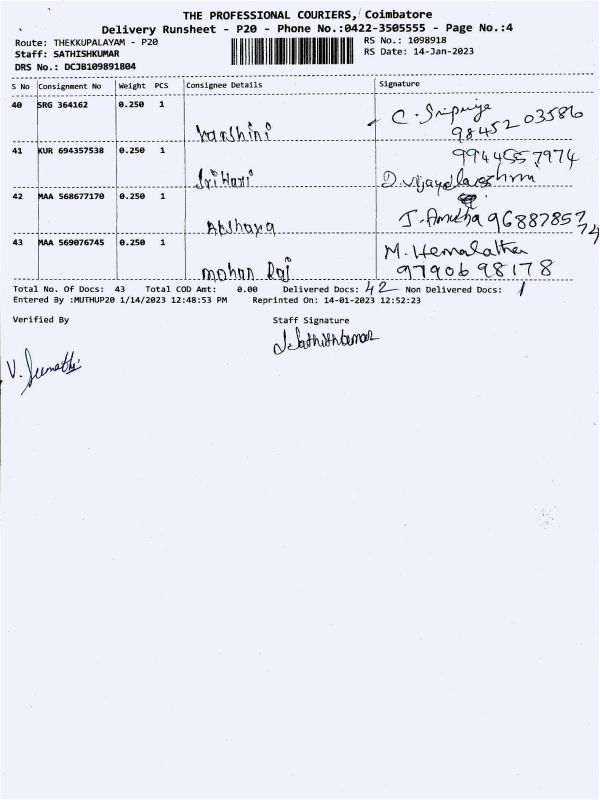 THE PROFESSIONAL COURIERS, Coimbatore
Delivery Runsheet - P20 - Phone No.:0422-3505555 - Page No.:4
Route: THEKKUPALAYAM - P20
RS No.: 1098918
Staff: SATHISHKUMAR
RS Date: 14-Jan-2023
DRS No.: DCJB109891804
S No Consignment No Weight PCS Consignee Details Signature
40 SRG 364162 0.250 1 C. Sripriya
Varshini 98452 03586
41 KUR 694357538 0.250 1 9944557974
Sri Hari D. Vijayalakshmi
42 MAA 568677170 0.250 1
Akshaya J. Amutha 9688785774
43 MAA 569076745 0.250 1 M. Hemalatha
mohan Raj 9790698178
Total No. Of Docs: 43 Total COD Amt: 0.00 Delivered Docs: 42 Non Delivered Docs: 1
Entered By :MUTHUP20 1/14/2023 12:48:53 PM Reprinted On: 14-01-2023 12:52:23
Verified By Staff Signature
J. Sathishkumar
V. Sumathi